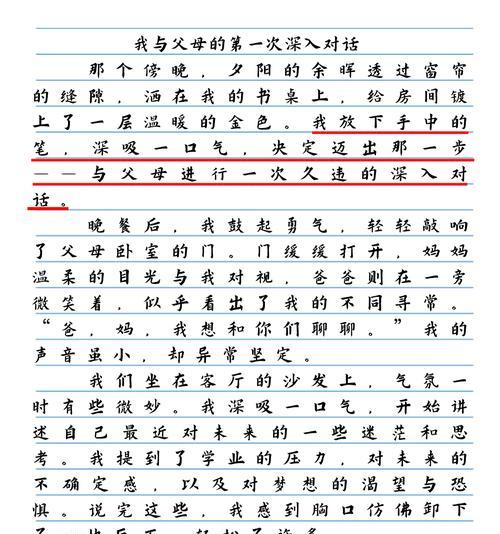 我与父母的第一次深入对话
那个傍晚，夕阳的余晖透过窗帘
的缝隙，洒在我的书桌上，给房间镀
上了一层温暖的金色。我放下手中的
笔，深吸一口气，决定迈出那一步
——与父母进行一次久违的深入对
话。
晚餐后，我鼓起勇气，轻轻敲响
了父母卧室的门。门缓缓打开，妈妈
温柔的目光与我对视，爸爸则在一旁
微笑着，似乎看出了我的不同寻常。
“爸，妈，我想和你们聊聊。”我的
声音虽小，却异常坚定。
我们坐在客厅的沙发上，气氛一
时有些微妙。我深吸一口气，开始讲
述自己最近对未来的一些迷茫和思
考。我提到了学业的压力，对未来的
不确定感，以及对梦想的渴望与恐
惧。说完这些，我感到胸口仿佛卸下